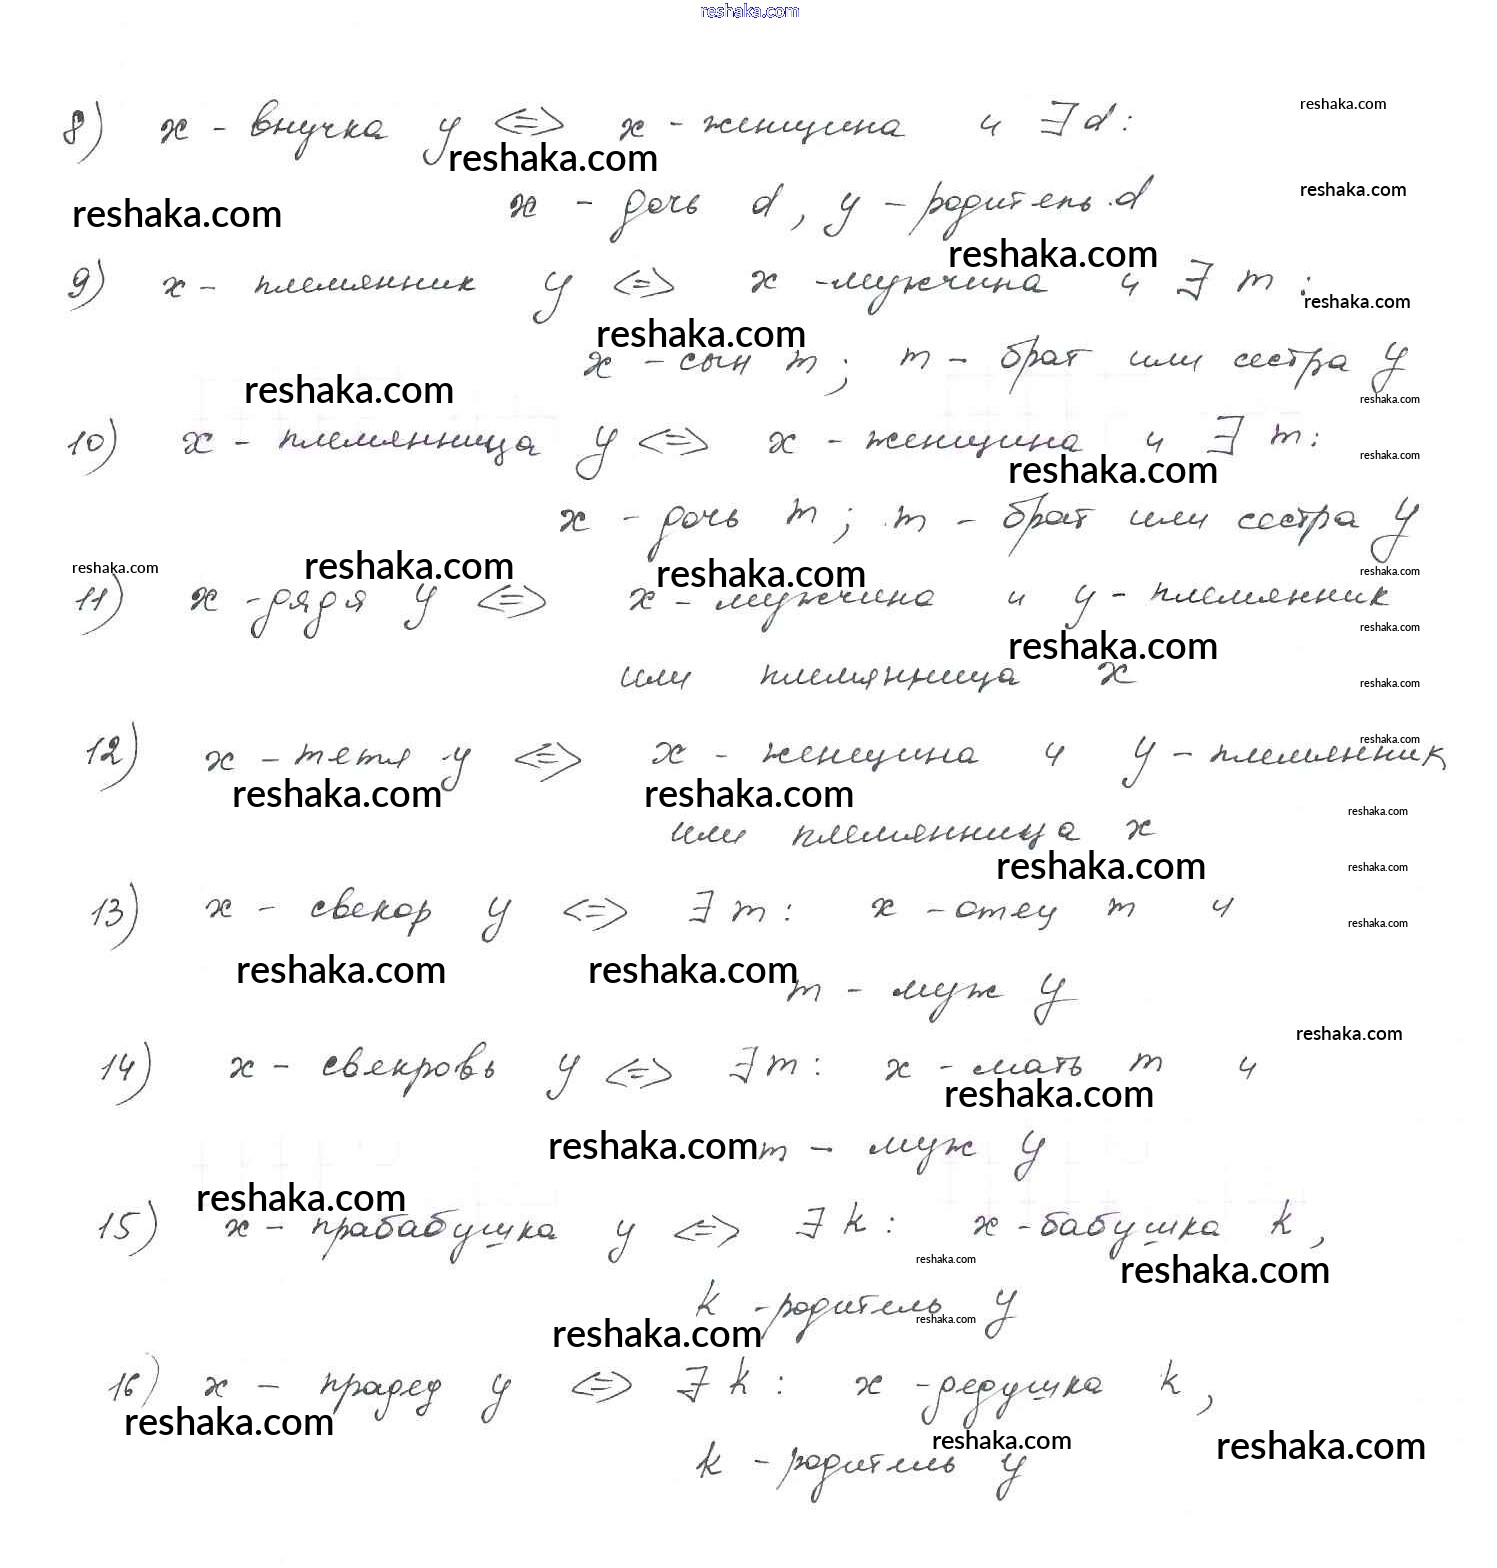 reshaka.com
8) x - внучка y <=> x - женщина и ∃ d:
reshaka.com
reshaka.com
x - дочь d, y - родитель d
reshaka.com
reshaka.com
reshaka.com
9) x - племянник y <=> x - мужчина и ∃ m:
reshaka.com
reshaka.com
x - сын m; m - брат или сестра y
reshaka.com
reshaka.com
10) x - племянница y <=> x - женщина и ∃ m:
reshaka.com
reshaka.com
x - дочь m; m - брат или сестра y
reshaka.com
reshaka.com
reshaka.com
reshaka.com
11) x - дядя y <=> x - мужчина и y - племянник
reshaka.com
reshaka.com
или племянница x
reshaka.com
reshaka.com
12) x - тетя y <=> x - женщина и y - племянник
reshaka.com
reshaka.com
reshaka.com
или племянница x
reshaka.com
reshaka.com
13) x - свекор y <=> ∃ m: x - отец m и
reshaka.com
reshaka.com
reshaka.com
m - муж y
reshaka.com
14) x - свекровь y <=> ∃ m: x - мать m и
reshaka.com
reshaka.com
m - муж y
reshaka.com
15) x - прабабушка y <=> ∃ k: x - бабушка k,
reshaka.com
reshaka.com
k - родитель y
reshaka.com
reshaka.com
16) x - прадед y <=> ∃ k: x - дедушка k,
reshaka.com
reshaka.com
reshaka.com
k - родитель y